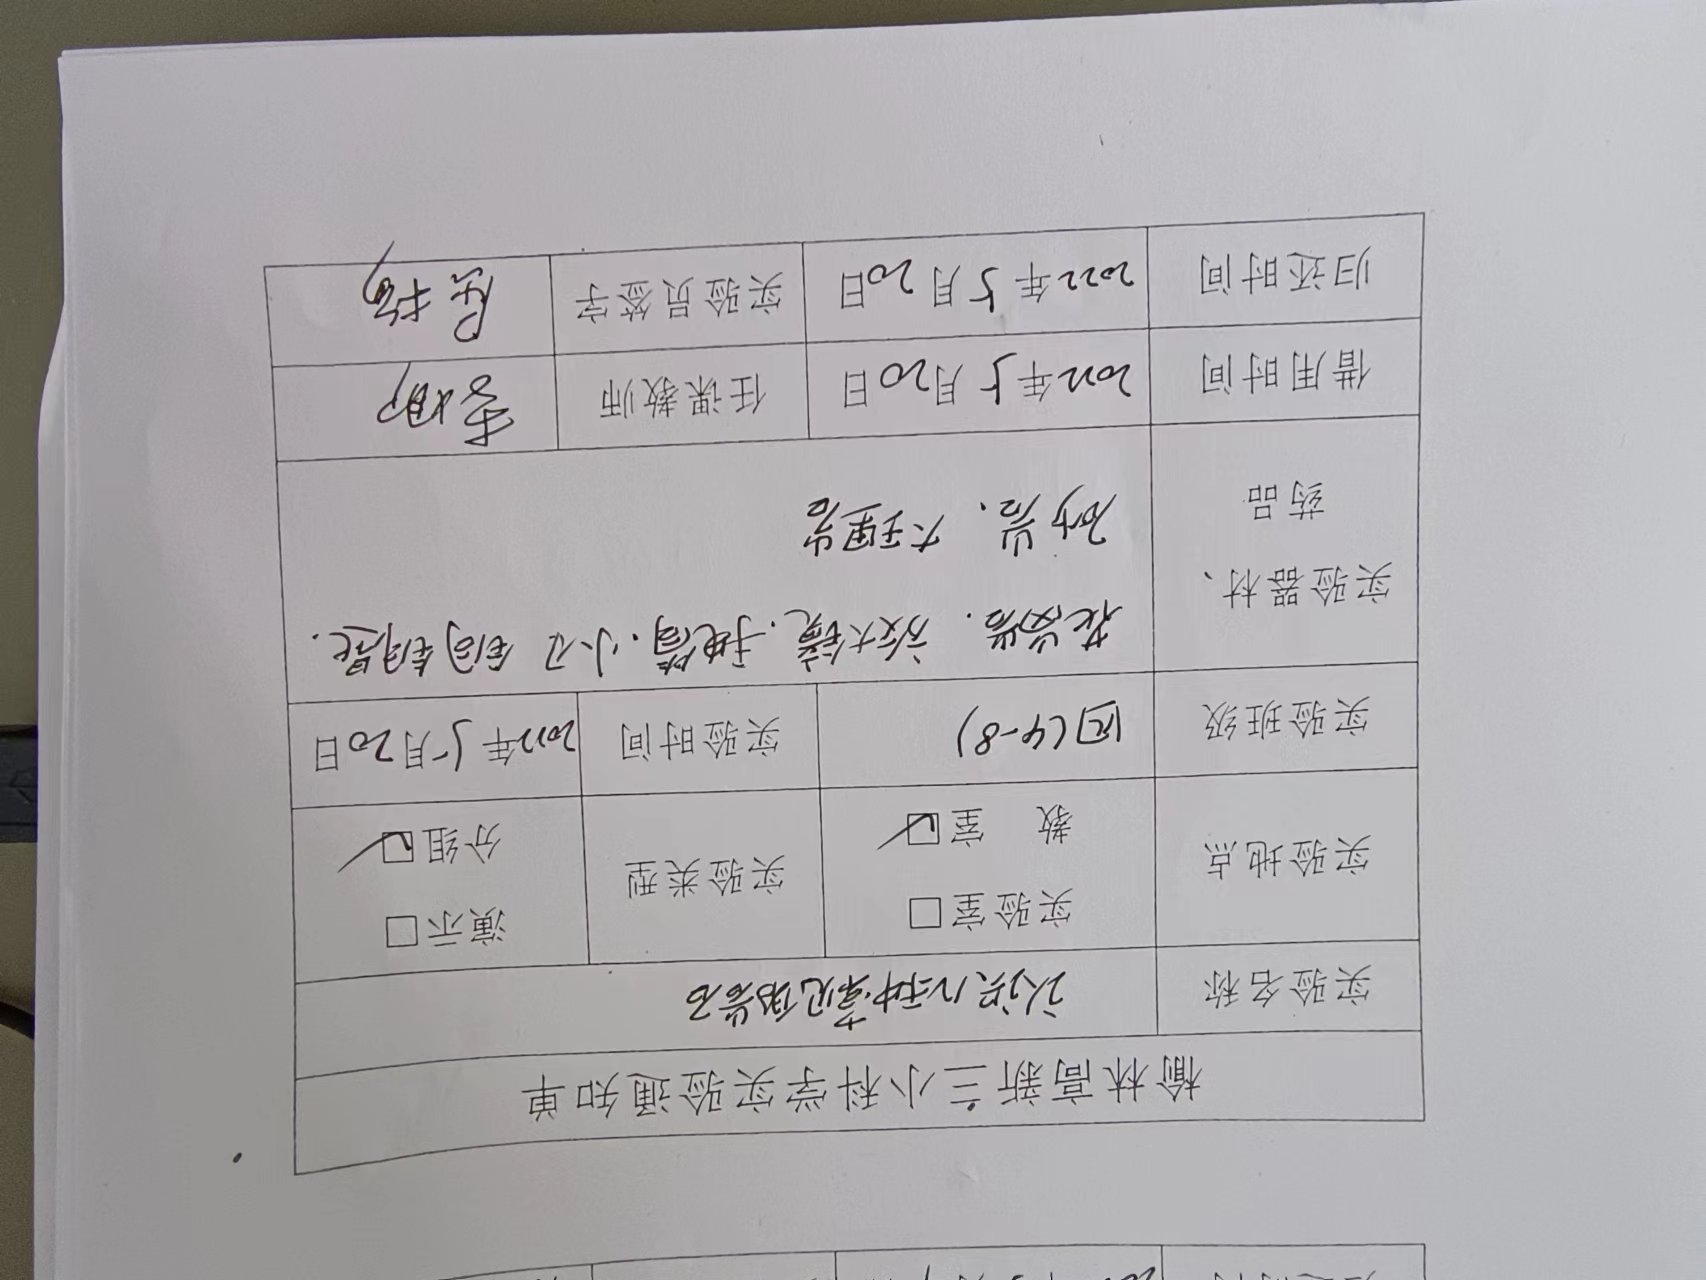 榆林高新三小科学实验通知单
实验名称 认识几种常见的岩石
实验地点 实验室□ 教 室☑ 实验类型 演示□ 分组☑
实验班级 四(4-8) 实验时间 2022年5月20日
实验器材、
药品
花岗岩. 放大镜. 手电筒. 小刀 铜钥匙.
砂岩、大理岩
借用时间 2022年5月20日 任课教师 李
归还时间 2022年5月20日 实验员签字